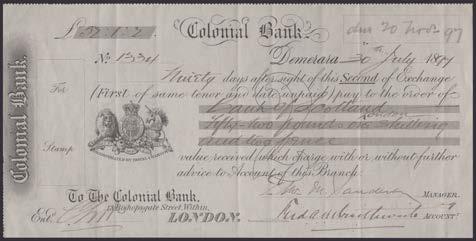 £52:1:2 Colonial Bank. due 20 Novr 97
No. 1334 Demerara 30th July 1897
Ninety days after sight of this Second of Exchange
For (First of same tenor and date unpaid) pay to the order of
Bank of Scotland
London
Fifty-two pounds one shilling
Stamp and two pence
INCORPORATED BY ROYAL CHARTER
value received which charge with or without further
advice to Account of this Branch.
MANAGER.
To The Colonial Bank,
13, Bishopsgate Street, Within,
Entd. LONDON. ACCOUNTT.
Colonial Bank.